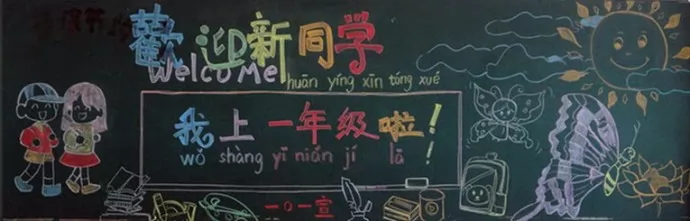 歡迎新同学
Welcome
huān yíng xīn tóng xué
我上一年级啦!
wǒ shàng yī nián jí lā !
一〇一宣